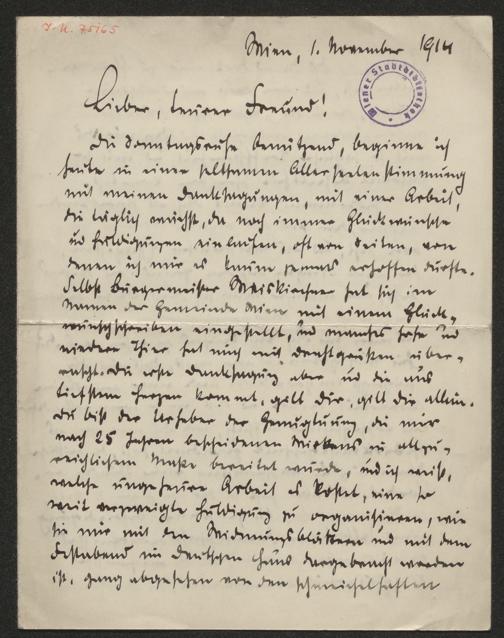 J.N. 75165
Wien, 1. November 1914
Wiener Stadtbibliothek
Lieber, teurer Freund!
Die Sonntagsruhe benützend, beginne ich
heute in einer seltsamen Allerseelenstimmung
mit meinen Danksagungen, mit einer Arbeit,
die täglich wächst, da noch immer Glückwünsche
und Huldigungen einlaufen, oft von Seiten, von
denen ich mir es kaum jemals erhoffen durfte.
Selbst Bürgermeister Weiskirchner hat sich im
Namen der Gemeinde Wien mit einem Glück-
wunschschreiben eingestellt, und manches hohe und
niedere Thier hat mich mit Drahtgrüßen über-
rascht. Die erste Danksagung aber und die aus
tiefstem Herzen kommt, gilt Dir, gilt Dir allein.
Du bist der Urheber der Genugtuung, die mir
nach 25 Jahren bescheidenen Wirkens in allzu-
reichlichem Maße bereitet wurde, und ich weiß,
welche ungeheure Arbeit es kostet, eine so
weit verzweigte Huldigung zu organisieren, wie
sie mir mit den Widmungsblättern und mit dem
Festabend im Deutschen Haus dargebracht worden
ist, ganz abgesehen von den schmeichelhaften